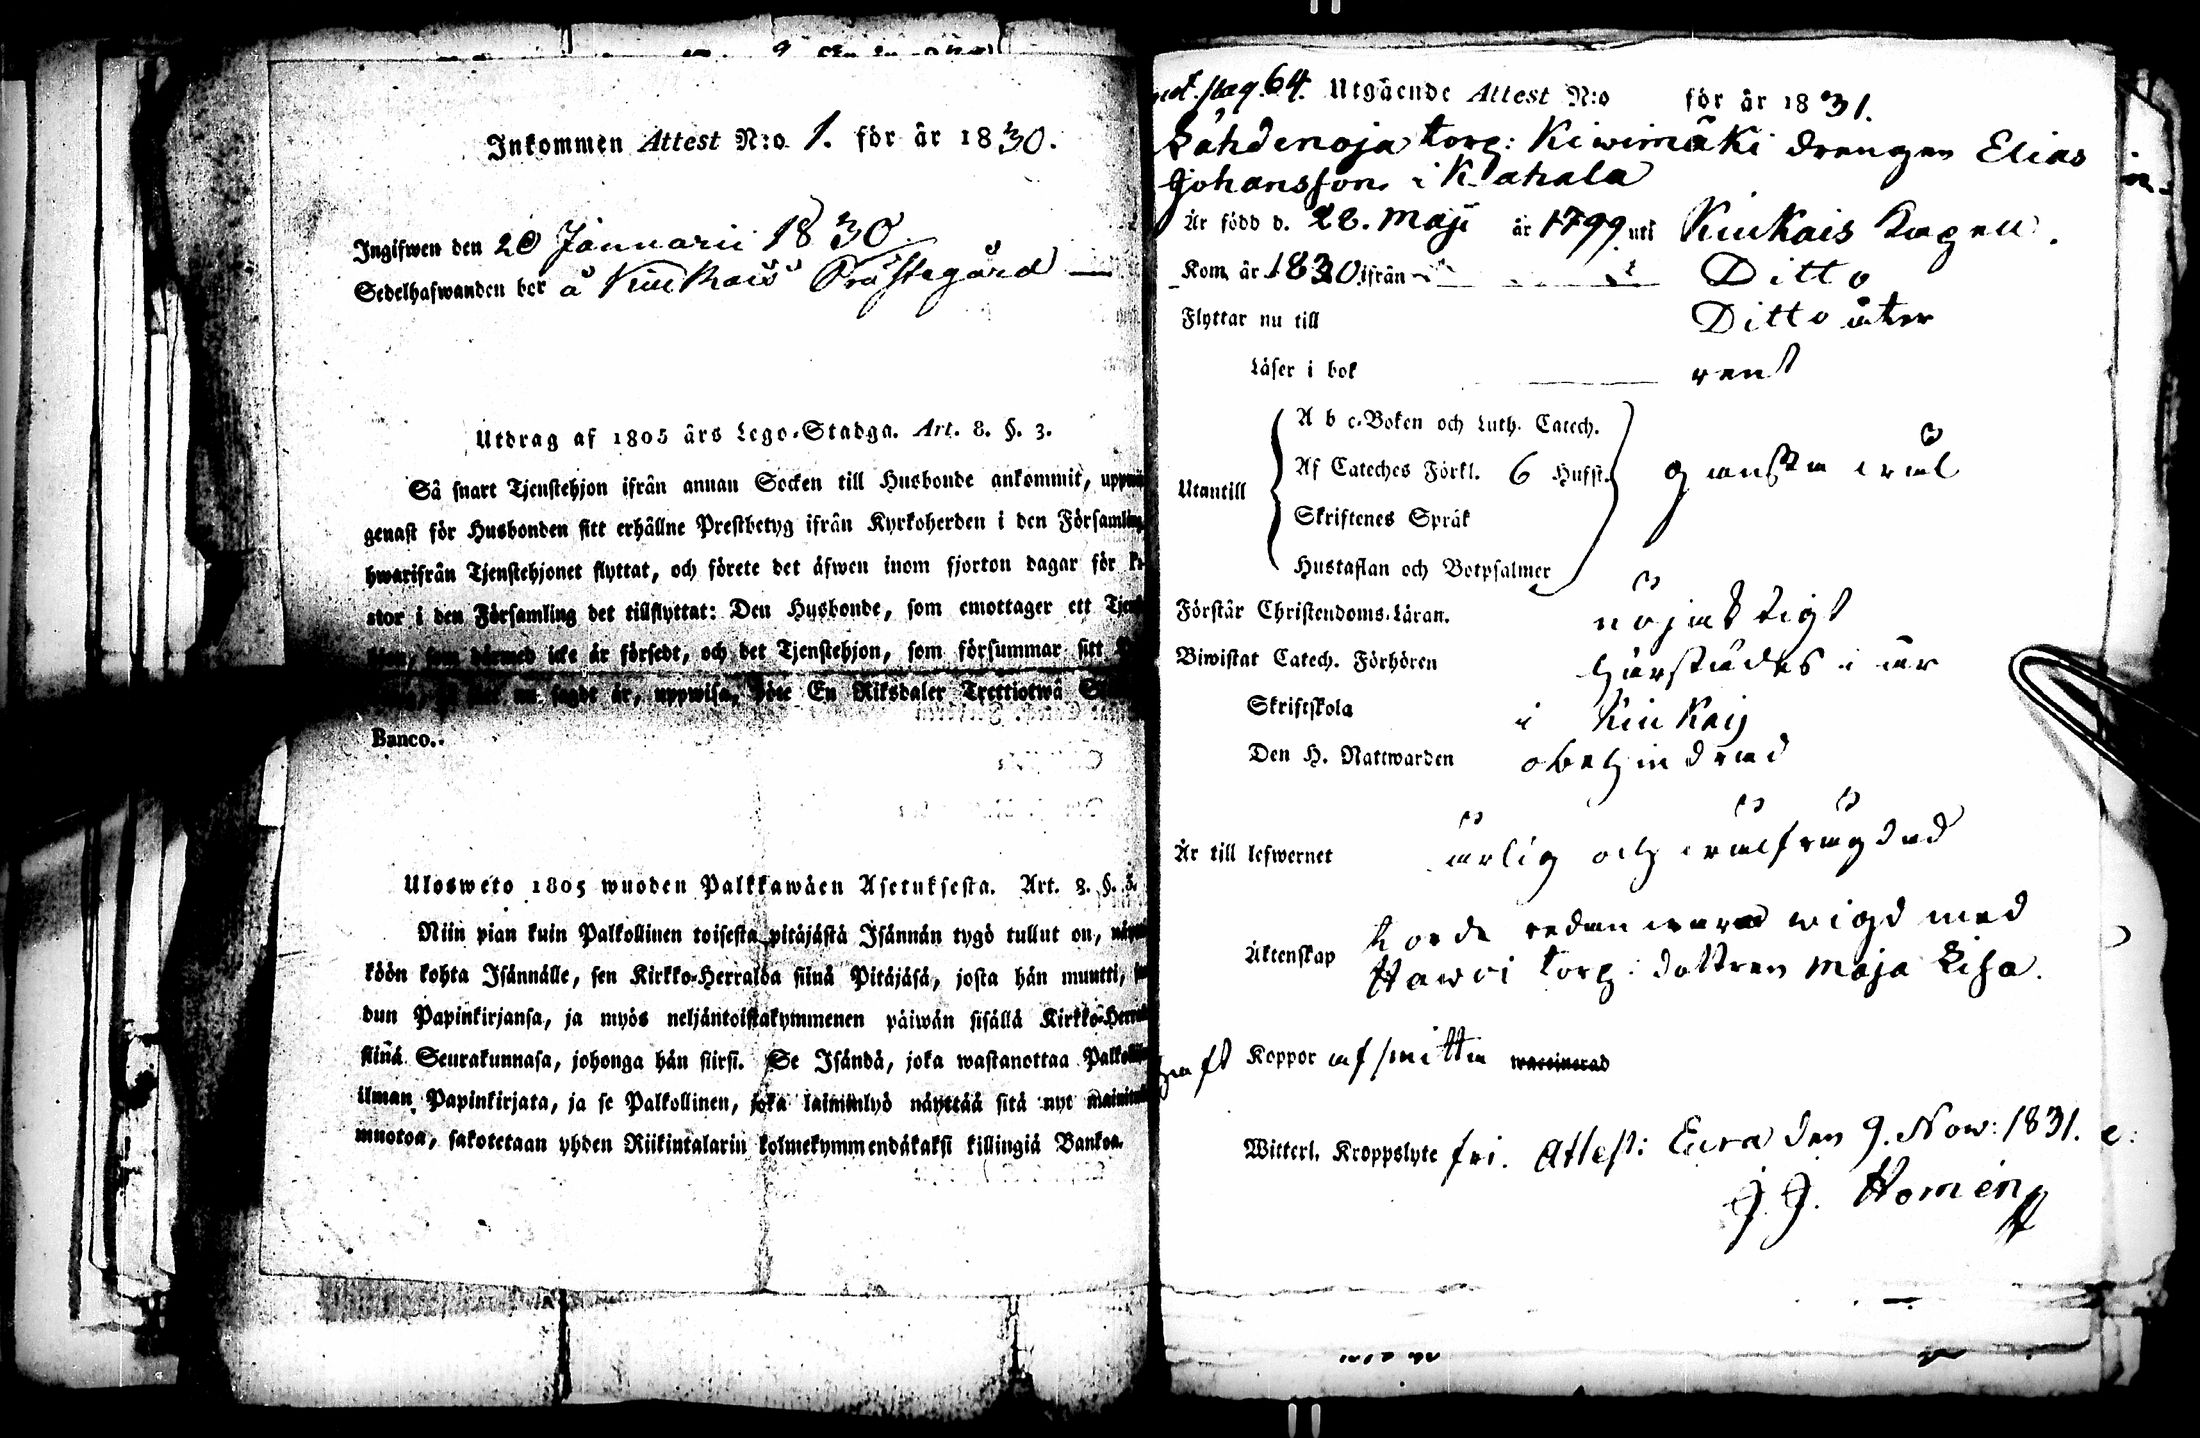 Inkommen Attest N:o 1. för år 1830.
Ingifwen den 20 Januarii 1830
Sedelhafwanden bor å Kiukais Prästegård —
Utdrag af 1805 års Lego-Stadga. Art. 8. §. 3.
Så snart Tjenstehjon ifrån annan Socken till Husbonde ankommit,
genast för Husbonden sitt erhållne Prestbetyg ifrån Kyrkoherden i den Församling,
hwarifrån Tjenstehjonet flyttat, och förete det äfwen inom fjorton dagar för
i den Församling det tillflyttat: Den Husbonde, som emottager ett
som dermed icke är försedt, och det Tjenstehjon, som försummar sitt
nu sagdt är, uppwisa, böte En Riksdaler Trettiotwå
Banco.
Ulosweto 1805 wuoden Palkkawäen Asetuksesta. Art. 8. §. 3.
Niin pian kuin Palkollinen toisesta pitäjästä Isännän tygö tullut on,
köön kohta Isännälle, sen Kirkko-Herralda siinä Pitäjäsä, josta hän muutti,
dun Papinkirjansa, ja myös neljäntoistakymmenen päiwän sisällä
siinä Seurakunnasa, johonga hän siirsi. Se Isändä, joka wastanottaa
ilman Papinkirjata, ja se Palkollinen, joka laiminlyö näyttää sitä nyt
muotoa, sakotetaan yhden Riikintalarin kolmekymmendäkaksi killingiä Bankoa.
pag. 64. Utgående Attest N:o för år 1831.
Lähdenoja torp: Kiwimäki drengen Elias
Johansson i Kahala
Är född d. 28. Maji år 1799 uti Kiukais Capell.
Kom år 1830 ifrån Ditto
Flyttar nu till Ditto åter
Läser i bok rent
Utantill
A b c-Boken och Luth. Catech.
Af Cateches Förkl. 6 Hufst. ganska wäl
Skriftenes Språk
Hustaflan och Botpsalmer
Förstår Christendoms-Läran. nöjaktigt
Biwistat Catech. Förhören härstädes i år
Skriftskola i Kiukais
Den H. Nattwarden obehindrad
Är till lefwernet ärlig och wälfrägdad
Äktenskap torde redan wara wigd med
Hawri torp: dottren Maja Lisa.
haft Koppor af smitta waccinerad
Witterl. Kroppslyte fri. Attest: Eura den 9. Now: 1831.
J. J. Homén